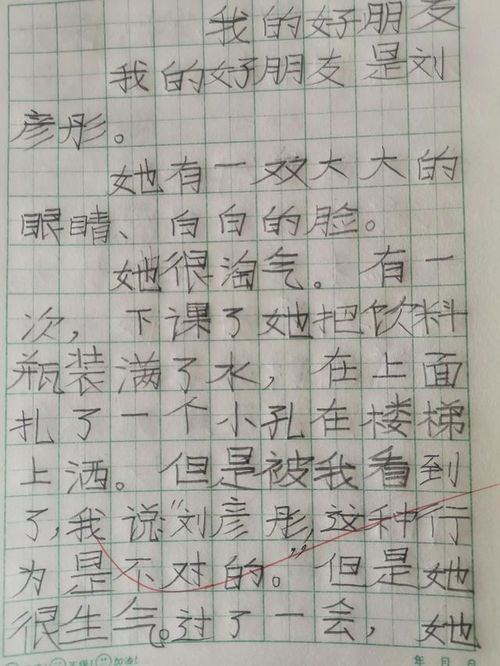 我的好朋友
我的好朋友是刘
彦彤。
她有一双大大的
眼睛、白白的脸。
她很淘气。有一
次，下课了她把饮料
瓶装满了水，在上面
扎了一个小孔在楼梯
上洒。但是被我看到
了，我说“刘彦彤，这种行
为是不对的。”但是她
很生气。过了一会，她
年 月 日